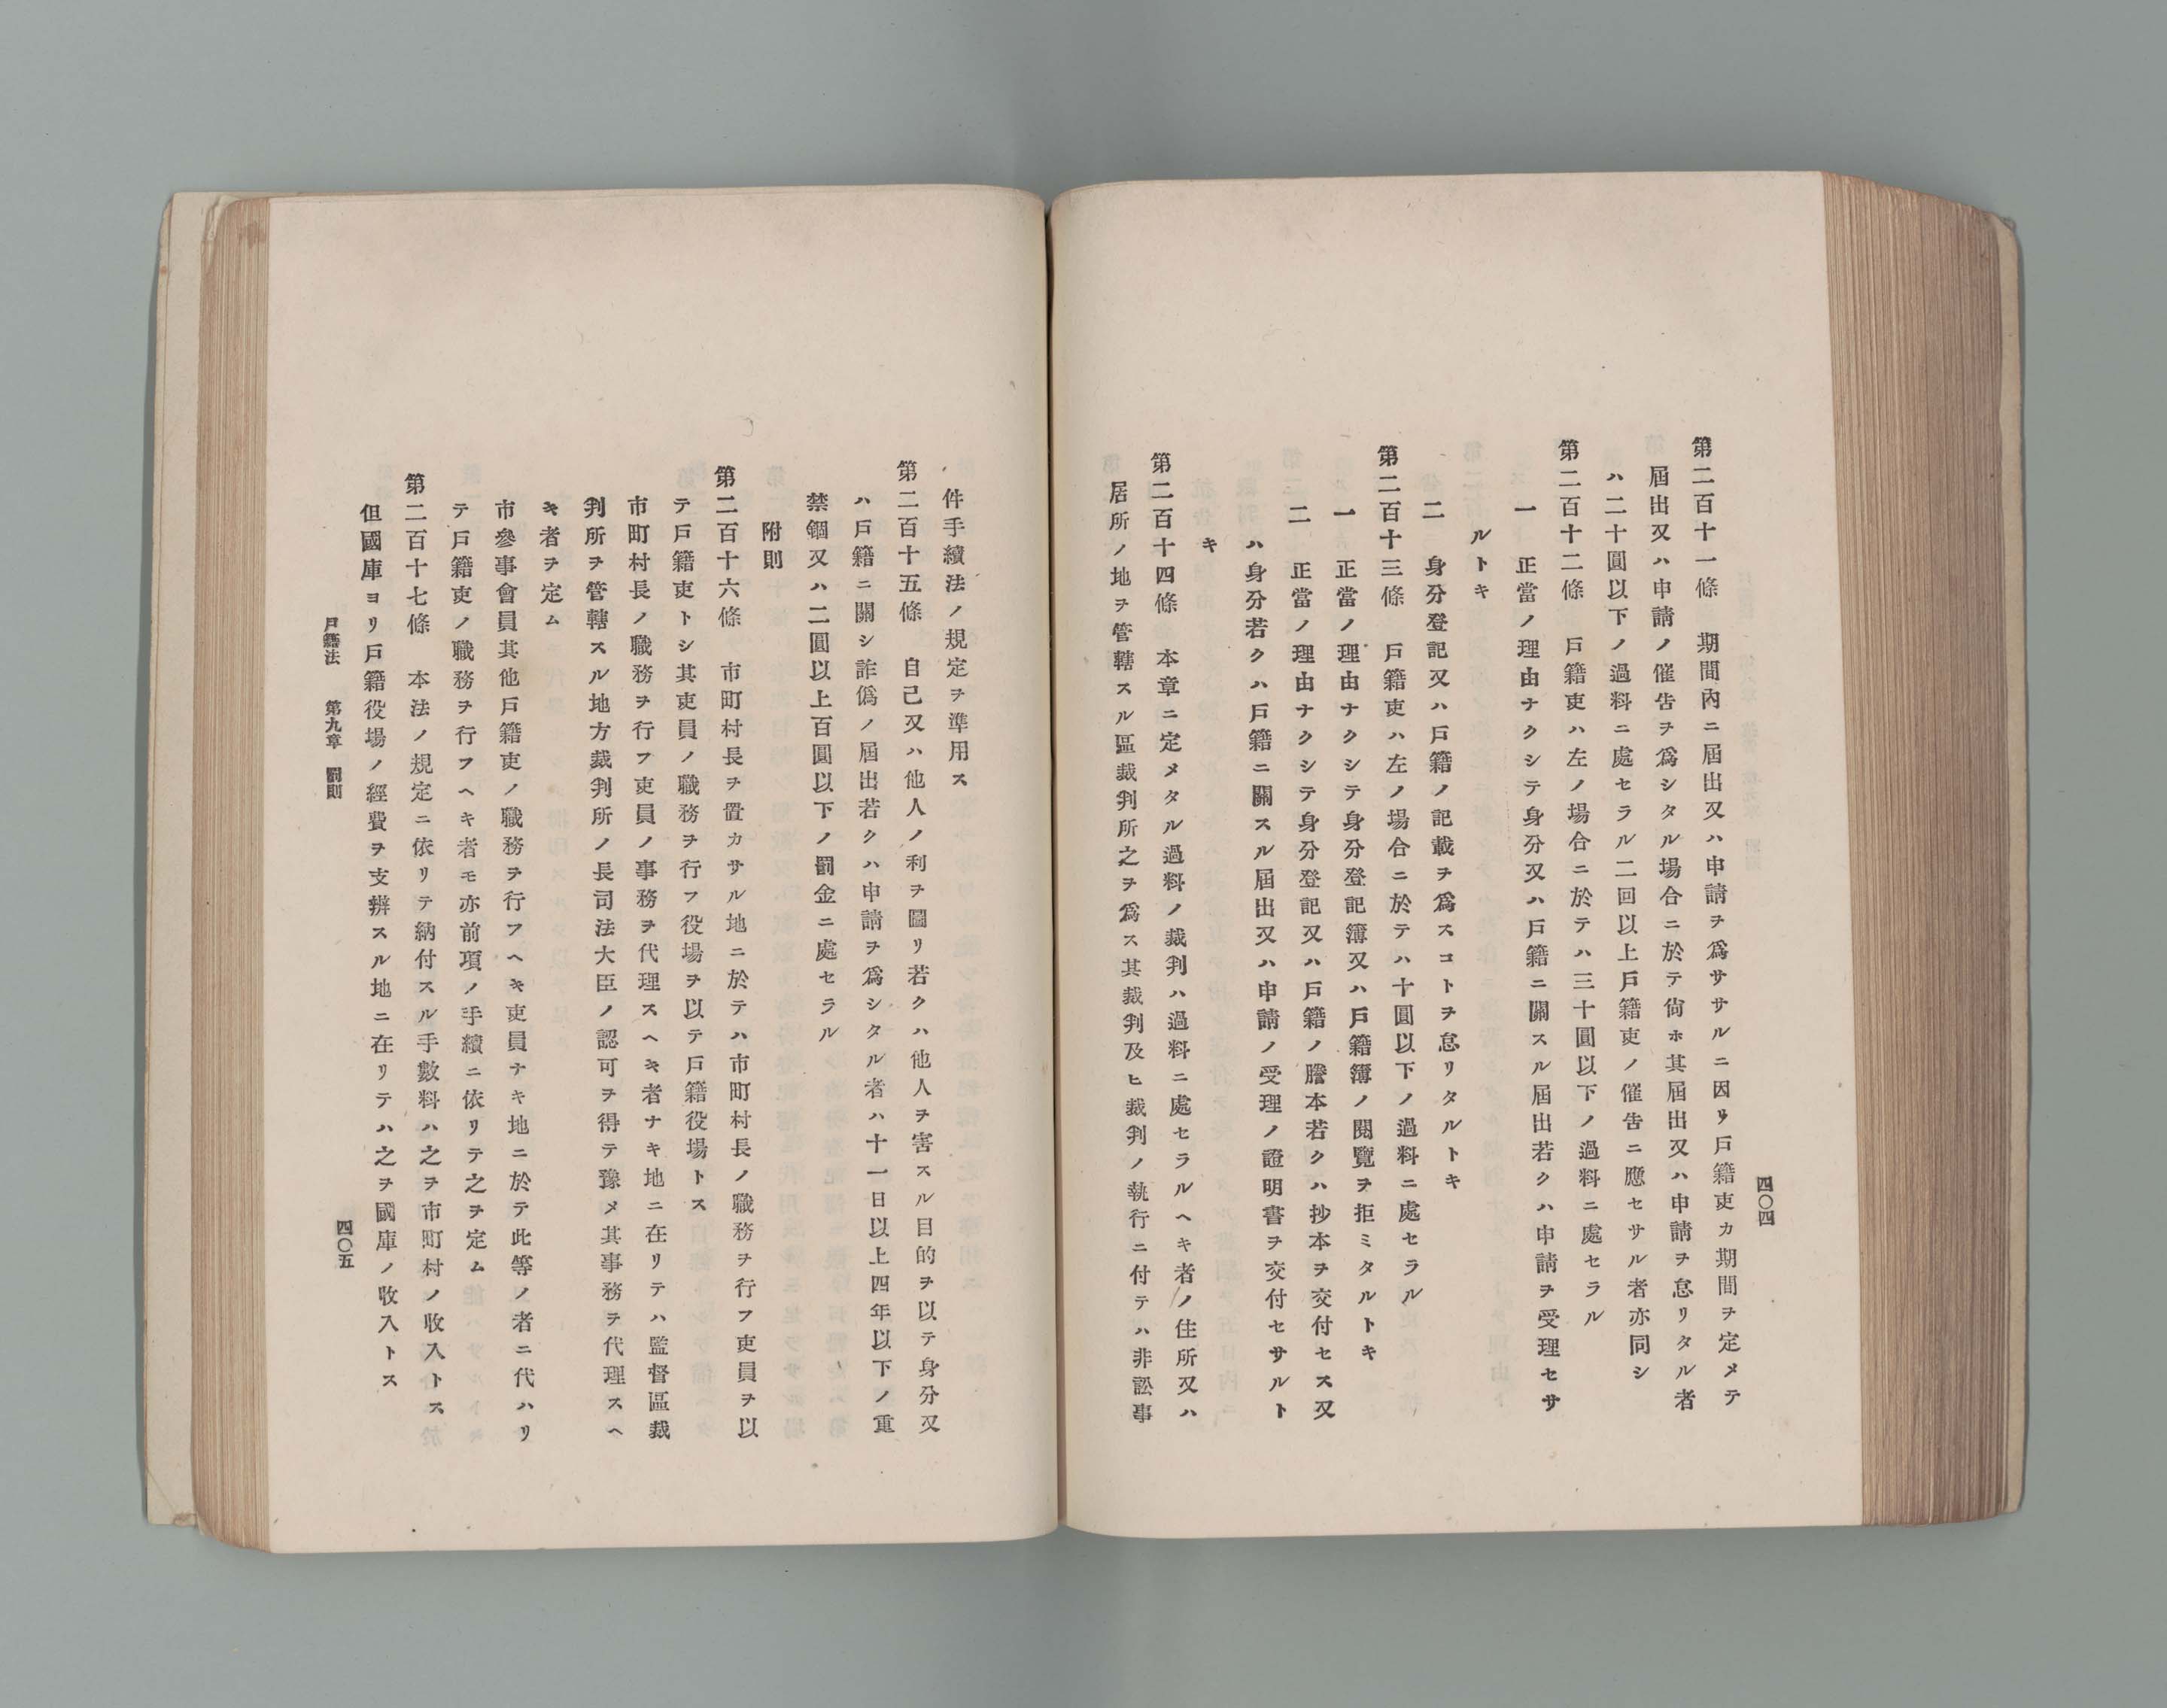 四〇四
第二百十一條　期間內ニ屆出又ハ申請ヲ爲ササルニ因リ戶籍吏カ期間ヲ定メテ
屆出又ハ申請ノ催吿ヲ爲シタル場合ニ於テ尙ホ其屆出又ハ申請ヲ怠リタル者
ハ二十圓以下ノ過料ニ處セラル二回以上戶籍吏ノ催吿ニ應セサル者亦同シ
第二百十二條　戶籍吏ハ左ノ場合ニ於テハ三十圓以下ノ過料ニ處セラル
一　正當ノ理由ナクシテ身分又ハ戶籍ニ關スル屆出若クハ申請ヲ受理セサ
ルトキ
二　身分登記又ハ戶籍ノ記載ヲ爲スコトヲ怠リタルトキ
第二百十三條　戶籍吏ハ左ノ場合ニ於テハ十圓以下ノ過料ニ處セラル
一　正當ノ理由ナクシテ身分登記簿又ハ戶籍簿ノ閱覽ヲ拒ミタルトキ
二　正當ノ理由ナクシテ身分登記又ハ戶籍ノ謄本若クハ抄本ヲ交付セス又
ハ身分若クハ戶籍ニ關スル屆出又ハ申請ノ受理ノ證明書ヲ交付セサルト
キ
第二百十四條　本章ニ定メタル過料ノ裁判ハ過料ニ處セラルヘキ者ノ住所又ハ
居所ノ地ヲ管轄スル區裁判所之ヲ爲ス其裁判及ヒ裁判ノ執行ニ付テハ非訟事
件手續法ノ規定ヲ準用ス
第二百十五條　自己又ハ他人ノ利ヲ圖リ若クハ他人ヲ害スル目的ヲ以テ身分又
ハ戶籍ニ關シ詐僞ノ屆出若クハ申請ヲ爲シタル者ハ十一日以上四年以下ノ重
禁錮又ハ二圓以上百圓以下ノ罰金ニ處セラル
附則
第二百十六條　市町村長ヲ置カサル地ニ於テハ市町村長ノ職務ヲ行フ吏員ヲ以
テ戶籍吏トシ其吏員ノ職務ヲ行フ役場ヲ以テ戶籍役場トス
市町村長ノ職務ヲ行フ吏員ノ事務ヲ代理スヘキ者ナキ地ニ在リテハ監督區裁
判所ヲ管轄スル地方裁判所ノ長司法大臣ノ認可ヲ得テ豫メ其事務ヲ代理スヘ
キ者ヲ定ム
市參事會員其他戶籍吏ノ職務ヲ行フヘキ吏員ナキ地ニ於テ此等ノ者ニ代ハリ
テ戶籍吏ノ職務ヲ行フヘキ者モ亦前項ノ手續ニ依リテ之ヲ定ム
第二百十七條　本法ノ規定ニ依リテ納付スル手數料ハ之ヲ市町村ノ收入トス
但國庫ヨリ戶籍役場ノ經費ヲ支辨スル地ニ在リテハ之ヲ國庫ノ收入トス
戶籍法　第九章　罰則
四〇五